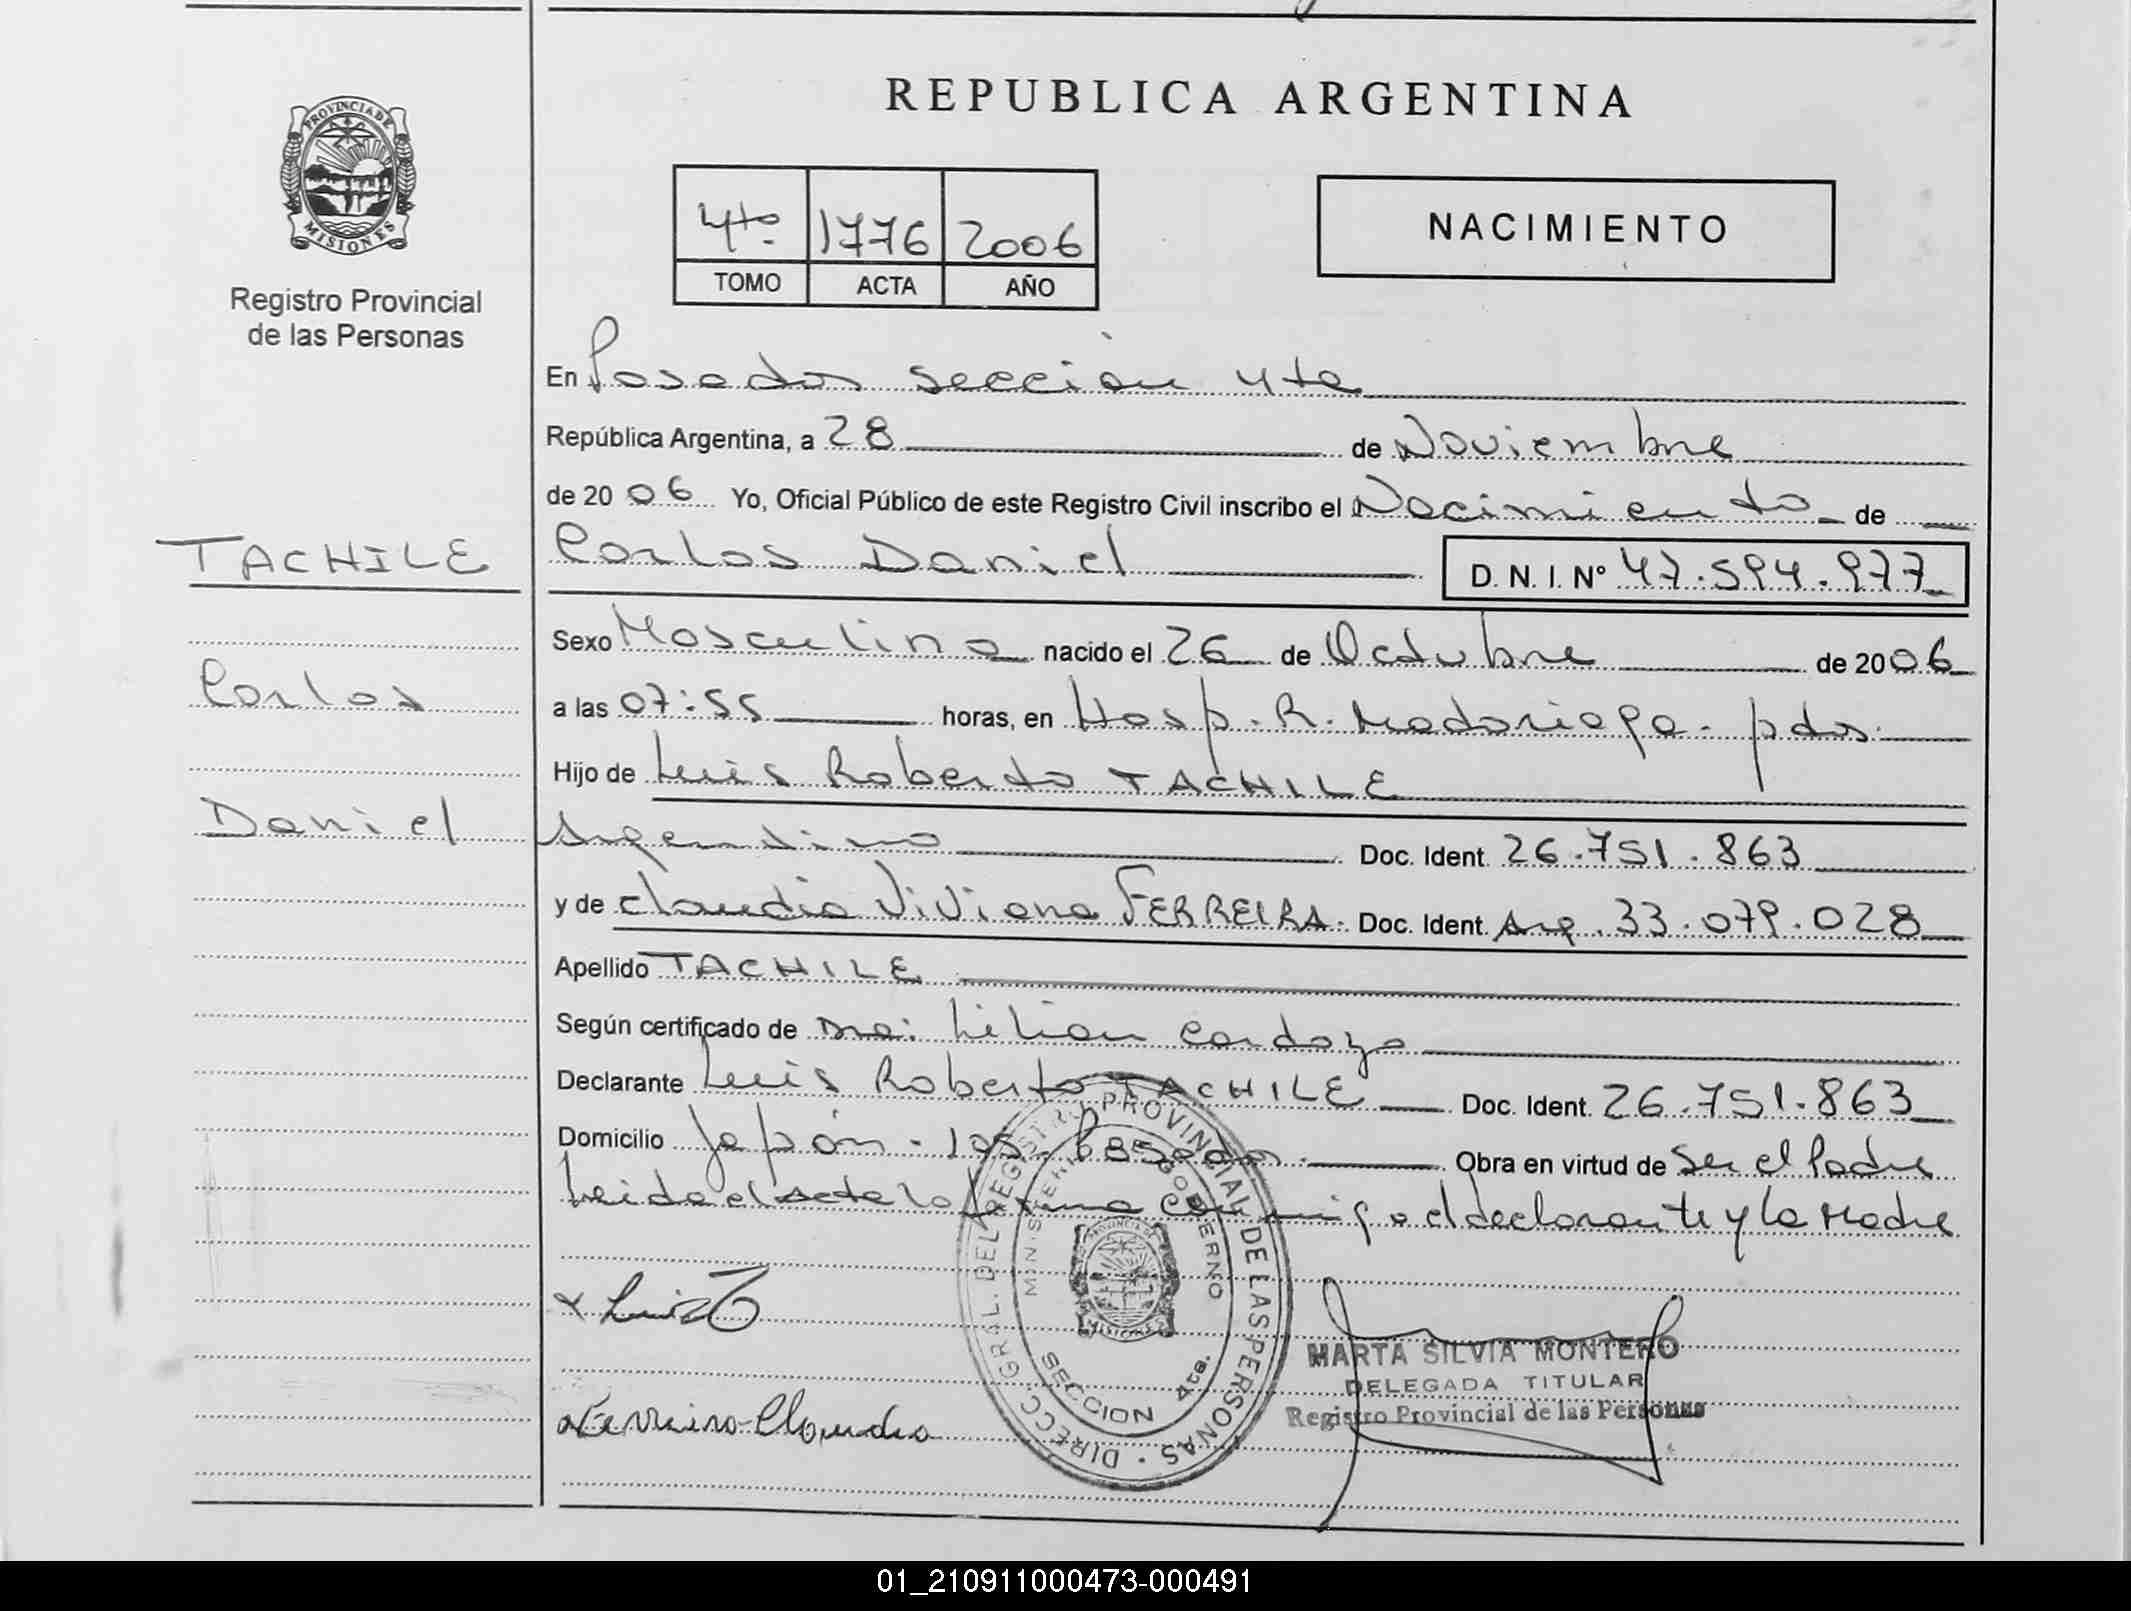 REPUBLICA ARGENTINA
PROVINCIA DE MISIONES
Registro Provincial
de las Personas
4to 1776 2006
TOMO ACTA AÑO
NACIMIENTO
En Posadas sección 4ta
República Argentina, a 28 de Noviembre
de 2006 Yo, Oficial Público de este Registro Civil inscribo el Nacimiento de
Carlos Daniel D. N. I. Nº 47.594.977
TACHILE
Carlos
Daniel
Sexo Masculino nacido el 26 de Octubre de 2006
a las 07:55 horas, en Hosp. R. Madariaga - pdas.
Hijo de Luis Roberto TACHILE
Argentino Doc. Ident. 26.751.863
y de Claudia Viviana FERREIRA. Doc. Ident. Arg. 33.079.028
Apellido TACHILE
Según certificado de Dra: Lilian Cardozo
Declarante Luis Roberto TACHILE Doc. Ident. 26.751.863
Domicilio Japón - 195 Posadas Obra en virtud de Ser el Padre
Leida el acta la firma conmigo el declarante y la Madre
Luis T
Ferreira Claudia
DIRECC. GRAL. DEL REGISTRO PROVINCIAL DE LAS PERSONAS
MINISTERIO GOBIERNO
PROVINCIA DE MISIONES
SECCION 4ta.
MARTA SILVIA MONTERO
DELEGADA TITULAR
Registro Provincial de las Personas
01_210911000473-000491